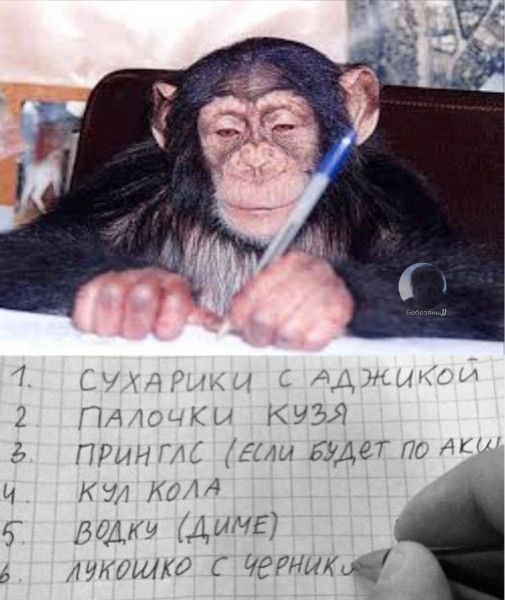 Бебезяны))
1. СУХАРИКИ С АДЖИКОЙ
2 ПАЛОЧКИ КУЗЯ
3. ПРИНГЛС (ЕСЛИ БУДЕТ ПО АКЦИ
4. КУЛ КОЛА
5. ВОДКУ (ДИМЕ)
6. ЛУКОШКО С ЧЕРНИКО